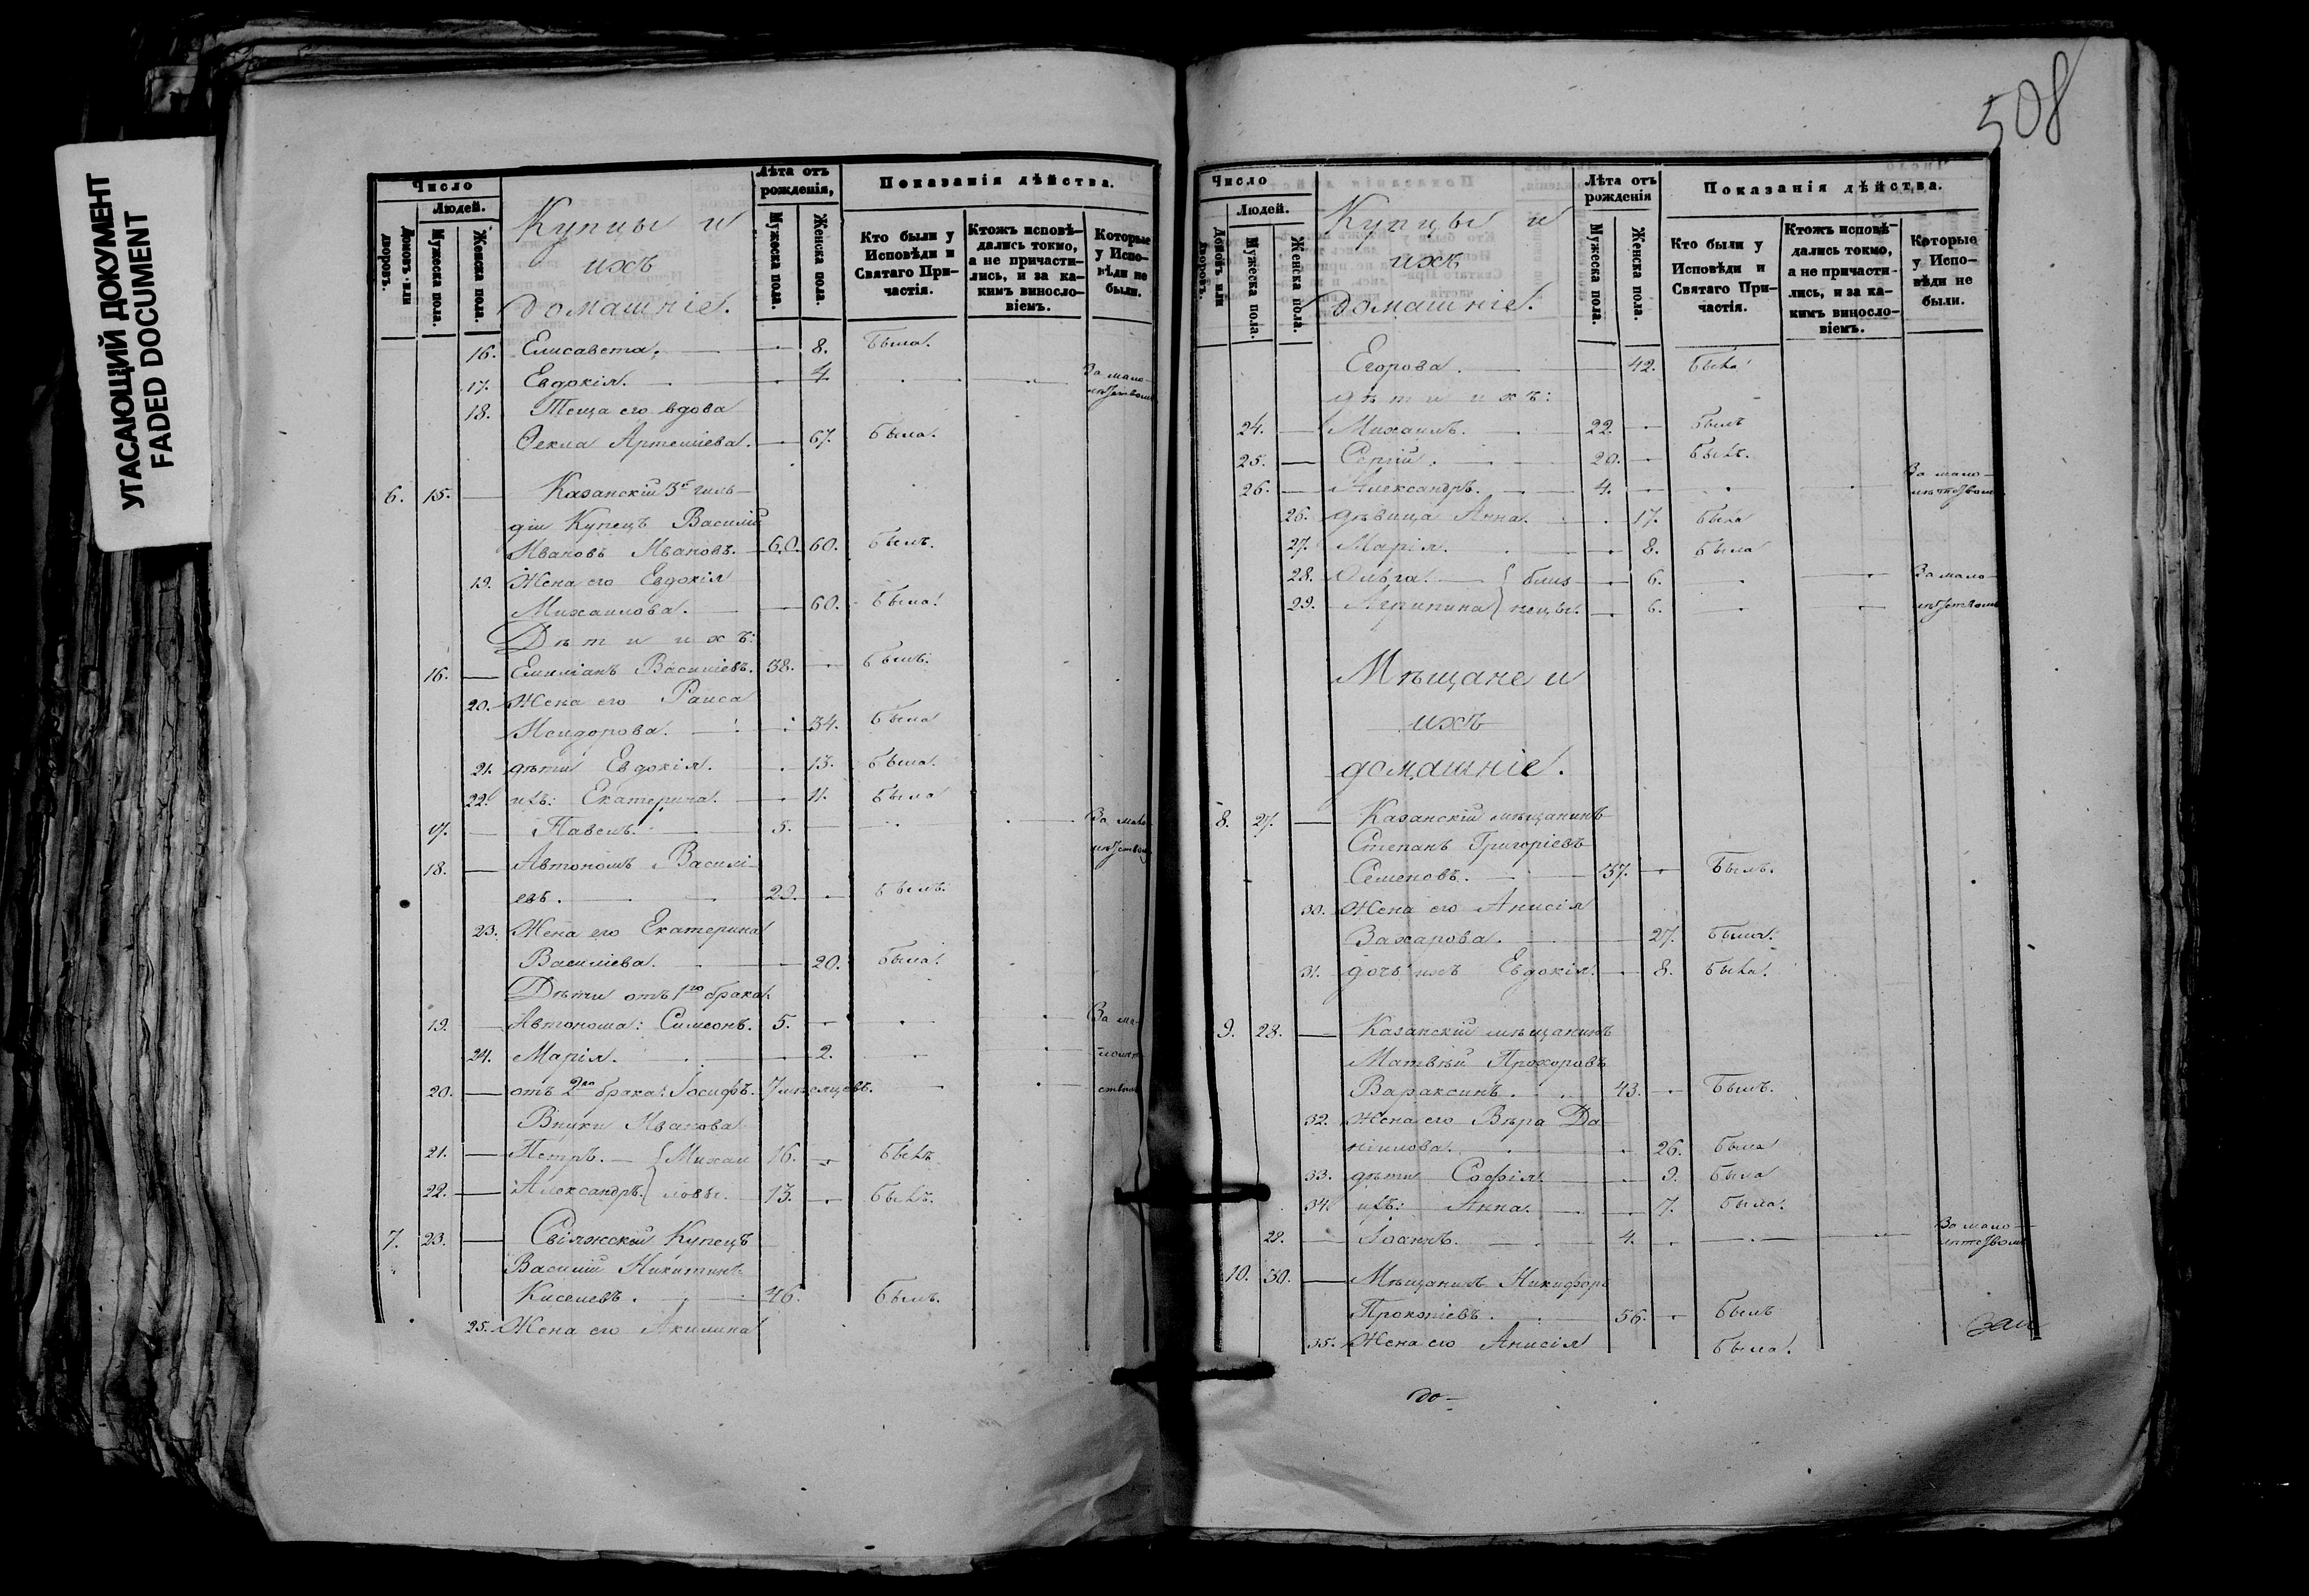 УГАСАЮЩИЙ ДОКУМЕНТ
FADED DOCUMENT
Число
Людей.
Домовъ или дворовъ.
Мужеска пола.
Женска пола.
Купцы и
ихъ
домашніе.
Лѣта отъ рожденія,
Мужеска пола.
Женска пола.
Показанія дѣйства.
Кто были у Исповѣди и Святаго Причастія.
Ктожъ исповѣдались токмо, а не причастились, и за какимъ винословіемъ.
Которые у Исповѣди не были.
16. Елисавета. — 8. Была.
17. Евдокія. — 4. За мало-
лѣтствомъ
18. Теща его вдова
Ѳекла Артемиева. — 67. Была.
6. 15. — Казанскій 3й гиль-
діи Купецъ Василій
Ивановъ Ивановъ. — 60. 60. Былъ.
19. Жена его Евдокія
Михаилова. — 60. Была.
Дѣти ихъ:
16. — Емиліанъ Василіевъ. 38. — Былъ.
20. Жена его Раиса
Исидорова. — 34. Была
21. дѣти Евдокія. — 13. Была.
22. ихъ: Екатерина. — 11. Была
17. — Павелъ. — 5. За мало
лѣтствомъ
18. — Автономъ Василі-
евъ. — 29. Былъ.
23. Жена его Екатерина
Василіева. — 20. Была.
Дѣти отъ 1го брака
19. — Автонома: Симеонъ. 5. — За ма-
24. Марія. — 2. лолѣт-
20. — отъ 2го брака: Іосифъ. 7 мѣсяцевъ. ствомъ
Внуки Иванова
21. — Петръ. — { Михаи 16. — Былъ
22. — Александръ. } ловы. 13. — Былъ.
7. 23. — Свіяжскій Купецъ
Василій Никитинъ
Киселевъ. 46. Былъ.
25. Жена его Акилина
508
Число
Людей.
Домовъ или дворовъ.
Мужеска пола.
Женска пола.
Купцы и
ихъ
домашніе.
Лѣта отъ рожденія
Мужеска пола.
Женска пола.
Показанія дѣйства.
Кто были у Исповѣди и Святаго Причастія.
Ктожъ исповѣдались токмо, а не причастились, и за какимъ винословіемъ.
Которые у Исповѣди не были.
Егорова. — 42. Была
дѣти ихъ:
24. — Михаилъ. — 22. — Былъ
25. — Сергій. — 20. — Былъ.
26. — Александръ. — 4. — За мало-
лѣтствомъ
26. дѣвица Анна. 17. Была
27. Марія. — 8. Была
28. Ольга. — { близ — 6. За мало-
29. Агрипина } нецы. — 6. лѣтствомъ
Мѣщане и
ихъ
домашніе.
8. 27. — Казанскій мѣщанинъ
Степанъ Григоріевъ
Семеновъ. — 37. — Былъ.
30. Жена его Анисія
Захарова. — 27. Была.
31. дочь ихъ Евдокія. — 8. Была.
9. 28. — Казанскій мѣщанинъ
Матвѣй Прохоровъ
Вараксинъ. 43. — Былъ.
32. Жена его Вѣра Да-
ніилова. 26. Была
33. дѣти Софія — 9. Была
34. ихъ: Анна. — 7. Была.
29. — Іоаннъ. — 4. За мало-
лѣтствомъ
10. 30. — Мѣщанинъ Никифоръ
Прокопіевъ. 56. — Былъ
35. Жена его Анисія Была.